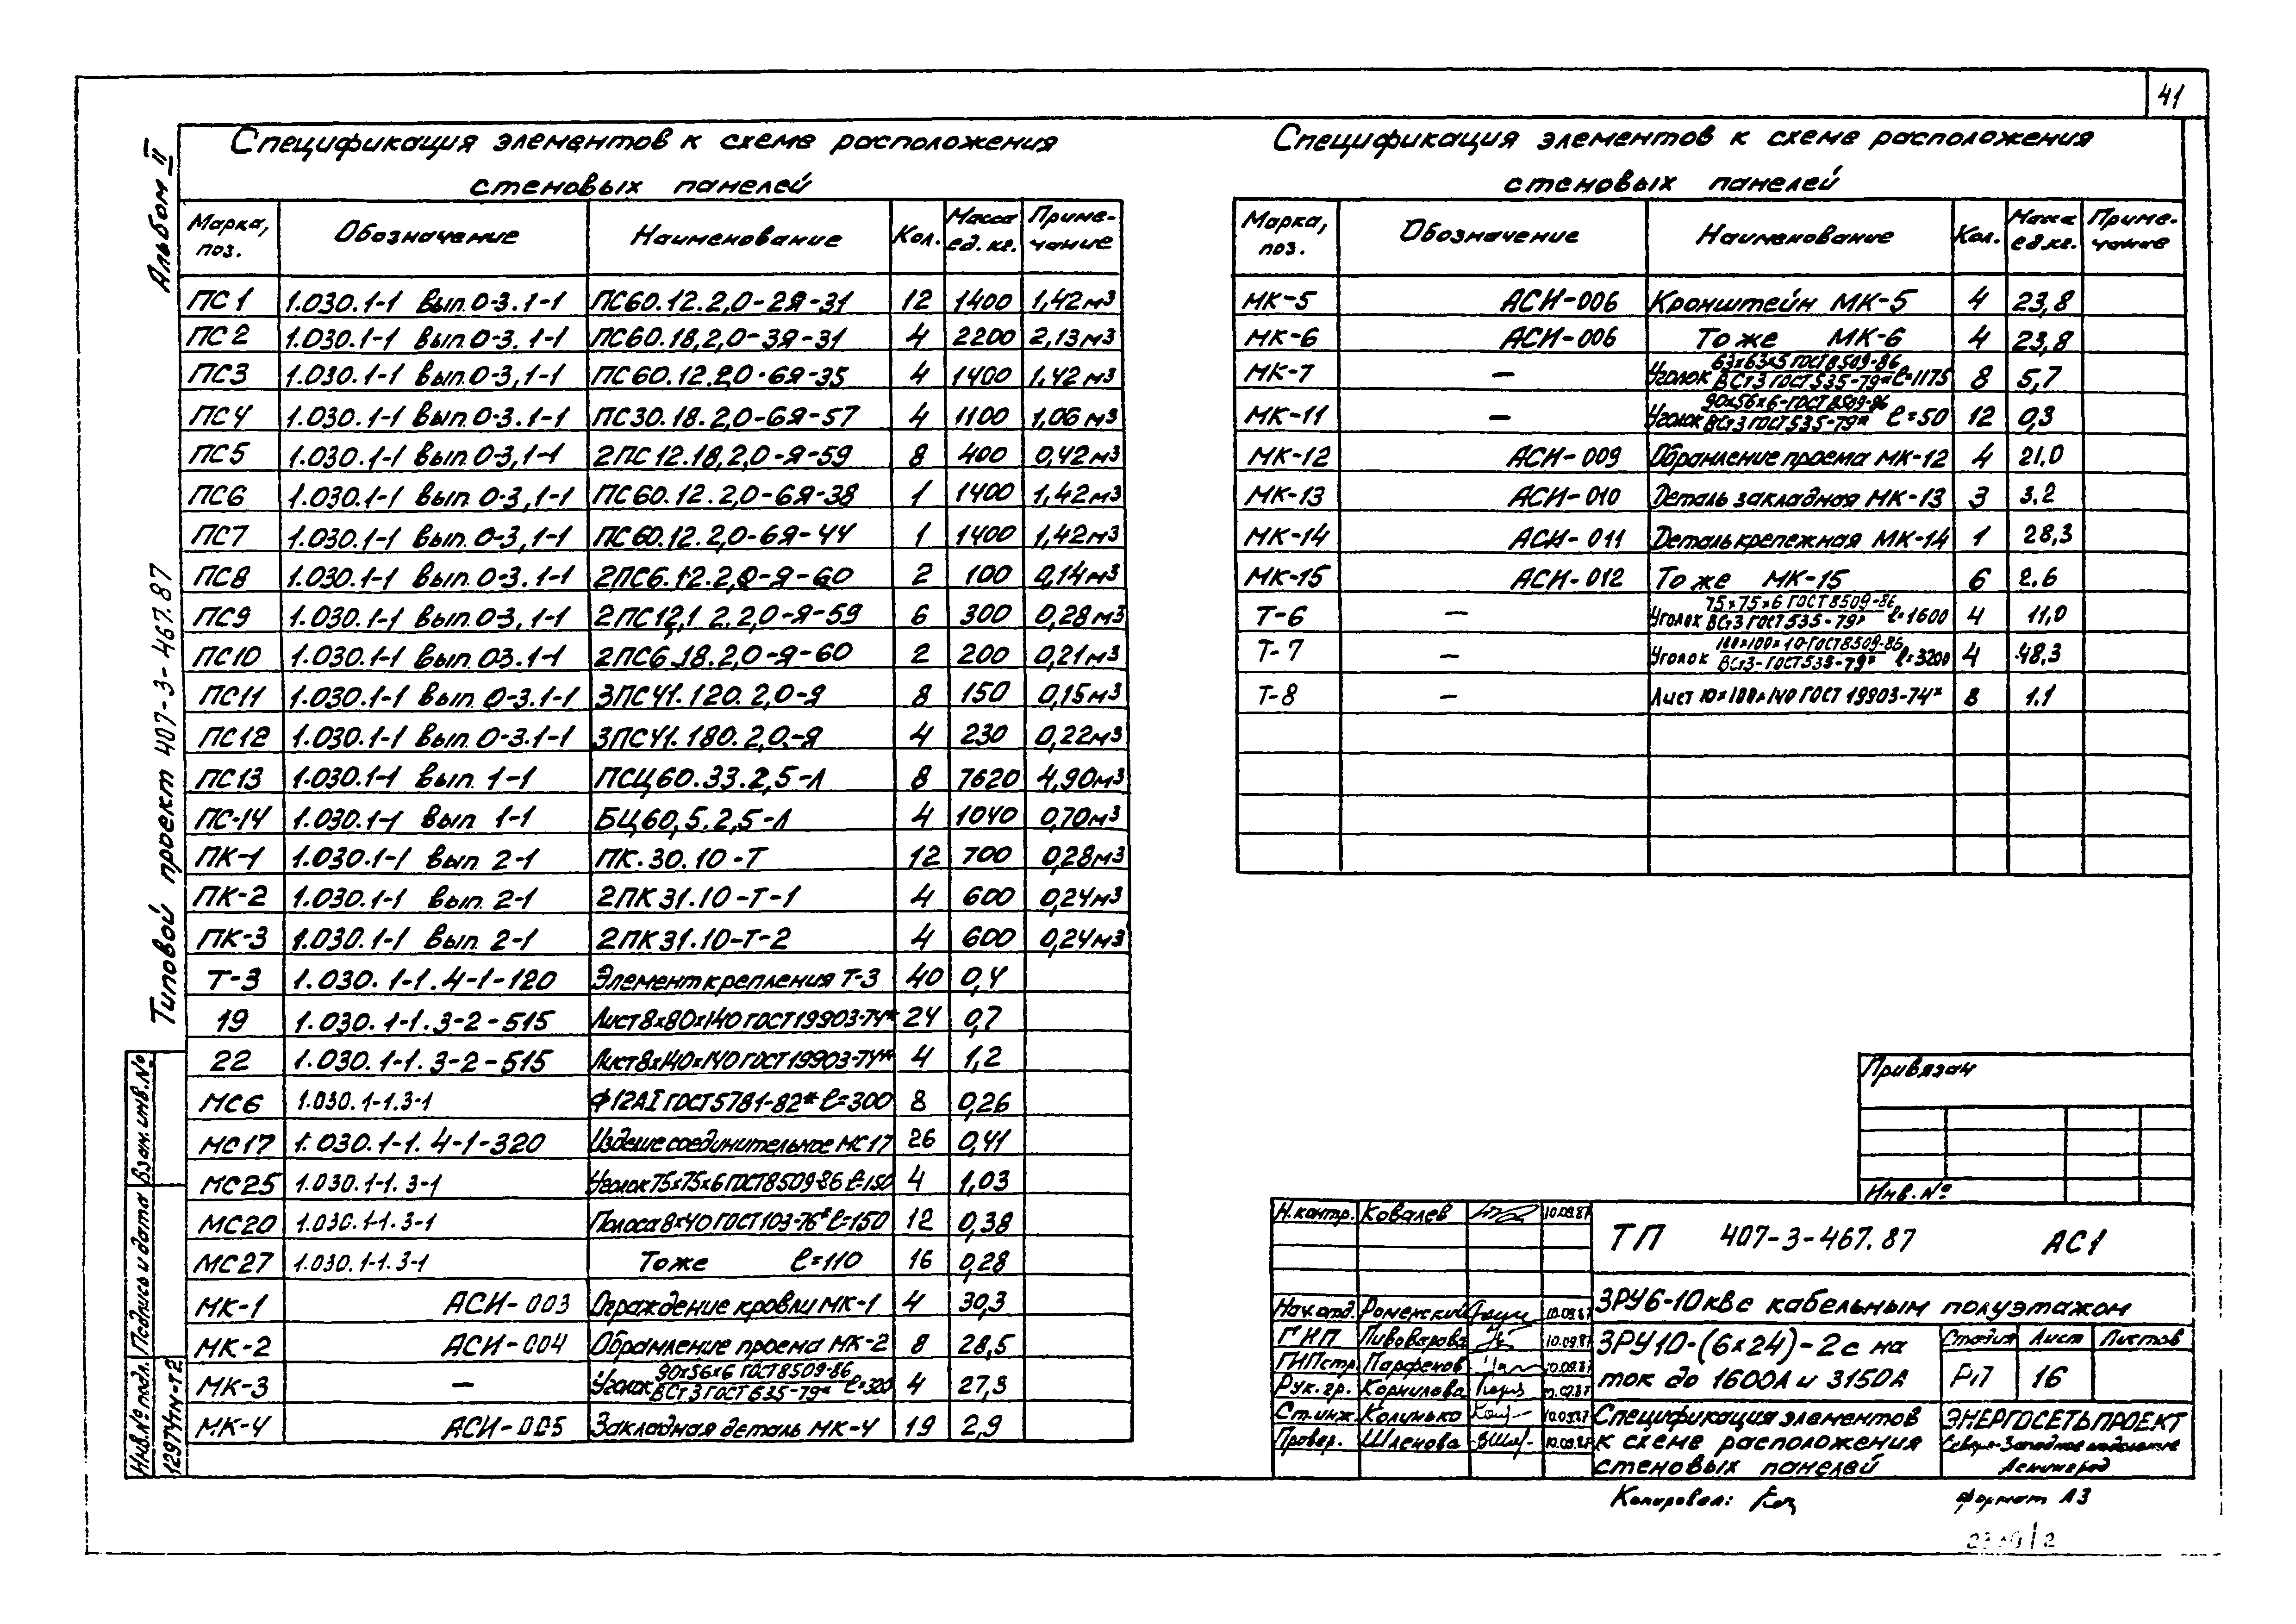 41
Альбом II
Типовой проект 407-3-467.87
Спецификация элементов к схеме расположения
стеновых панелей
Марка, поз. Обозначение Наименование Кол. Масса ед. кг. Примечание
ПС1 1.030.1-1 вып. 0-3. 1-1 ПС60.12.2,0-2Я-31 12 1400 1,42м3
ПС2 1.030.1-1 вып. 0-3. 1-1 ПС60.18,2,0-3Я-31 4 2200 2,13м3
ПС3 1.030.1-1 вып. 0-3, 1-1 ПС60.12.2,0-6Я-35 4 1400 1,42м3
ПС4 1.030.1-1 вып. 0-3. 1-1 ПС30.18.2,0-6Я-57 4 1100 1,06м3
ПС5 1.030.1-1 вып. 0-3, 1-1 2ПС12.18,2,0-Я-59 8 400 0,42м3
ПС6 1.030.1-1 вып. 0-3, 1-1 ПС60.12.2,0-6Я-38 1 1400 1,42м3
ПС7 1.030.1-1 вып. 0-3, 1-1 ПС60.12.2,0-6Я-44 1 1400 1,42м3
ПС8 1.030.1-1 вып. 0-3. 1-1 2ПС6.12.2,0-Я-60 2 100 0,14м3
ПС9 1.030.1-1 вып. 0-3, 1-1 2ПС12,1 2.2,0-Я-59 6 300 0,28м3
ПС10 1.030.1-1 вып. 03. 1-1 2ПС6.18.2,0-Я-60 2 200 0,21м3
ПС11 1.030.1-1 вып. 0-3.1-1 3ПС41.120.2,0-Я 8 150 0,15м3
ПС12 1.030.1-1 вып. 0-3.1-1 3ПС41.180.2,0-Я 4 230 0,22м3
ПС13 1.030.1-1 вып. 1-1 ПСЦ60.33.2,5-Л 8 7620 4,90м3
ПС-14 1.030.1-1 вып 1-1 БЦ60,5.2,5-Л 4 1040 0,70м3
ПК-1 1.030.1-1 вып 2-1 ПК.30.10-Т 12 700 0,28м3
ПК-2 1.030.1-1 вып. 2-1 2ПК31.10-Т-1 4 600 0,24м3
ПК-3 1.030.1-1 вып. 2-1 2ПК31.10-Т-2 4 600 0,24м3
Т-3 1.030.1-1.4-1-120 Элемент крепления Т-3 40 0,4
19 1.030.1-1.3-2-515 Лист 8х80х140 ГОСТ 19903-74* 24 0,7
22 1.030.1-1.3-2-515 Лист 8х140х140 ГОСТ 19903-74* 4 1,2
МС6 1.030.1-1.3-1 Ф12АI ГОСТ 5781-82* ℓ=300 8 0,26
МС17 1.030.1-1.4-1-320 Изделие соединительное МС17 26 0,41
МС25 1.030.1-1.3-1 Уголок 75х75х6 ГОСТ 8509-86 ℓ=150 4 1,03
МС20 1.030.1-1.3-1 Полоса 8х40 ГОСТ 103-76* ℓ=150 12 0,38
МС27 1.030.1-1.3-1 То же ℓ=110 16 0,28
МК-1 АСИ-003 Ограждение кровли МК-1 4 30,3
МК-2 АСИ-004 Обрамление проема МК-2 8 28,5
МК-3 — Уголок 90х56х6 ГОСТ 8509-86 / ВСт3 ГОСТ 535-79* ℓ=320 4 27,3
МК-4 АСИ-005 Закладная деталь МК-4 19 2,9
Спецификация элементов к схеме расположения
стеновых панелей
Марка, поз. Обозначение Наименование Кол. Масса ед.кг. Примечание
МК-5 АСИ-006 Кронштейн МК-5 4 23,8
МК-6 АСИ-006 То же МК-6 4 23,8
МК-7 — Уголок 63х63х5 ГОСТ 8509-86 / ВСт3 ГОСТ 535-79* ℓ=1175 8 5,7
МК-11 — Уголок 90х56х6-ГОСТ 8509-86 / ВСт3 ГОСТ 535-79* ℓ=50 12 0,3
МК-12 АСИ-009 Обрамление проема МК-12 4 21.0
МК-13 АСИ-010 Деталь закладная МК-13 3 3.2
МК-14 АСИ-011 Деталь крепежная МК-14 1 28,3
МК-15 АСИ-012 То же МК-15 6 2.6
Т-6 — Уголок 75х75х6 ГОСТ 8509-86 / ВСт3 ГОСТ 535-79* ℓ=1600 4 11,0
Т-7 — Уголок 100х100х10-ГОСТ 8509-86 / ВСт3-ГОСТ 535-79* ℓ=3200 4 48,3
Т-8 — Лист 10х100х140 ГОСТ 19903-74* 8 1.1
Привязан
Инв. №
Н.контр. Ковалев 10.09.87
Нач.отд. Роменский 10.09.87
ГИП Пивоварова 10.09.87
ГИПстр. Парфенов 10.09.87
Рук. гр. Корнилова 10.09.87
Ст.инж. Колинько 10.09.87
Провер. Шленова 10.09.87
ТП 407-3-467.87 АС1
ЗРУ6-10кв с кабельным полуэтажом
ЗРУ10-(6х24)-2с на
ток до 1600А и 3150А
Стадия Лист Листов
РП 16
Спецификация элементов
к схеме расположения
стеновых панелей
ЭНЕРГОСЕТЬПРОЕКТ
Северо-Западное отделение
Ленинград
Копировал:
формат А3
Взам. инв. №
Подпись и дата
Инв. № подл.
12974тм-т2